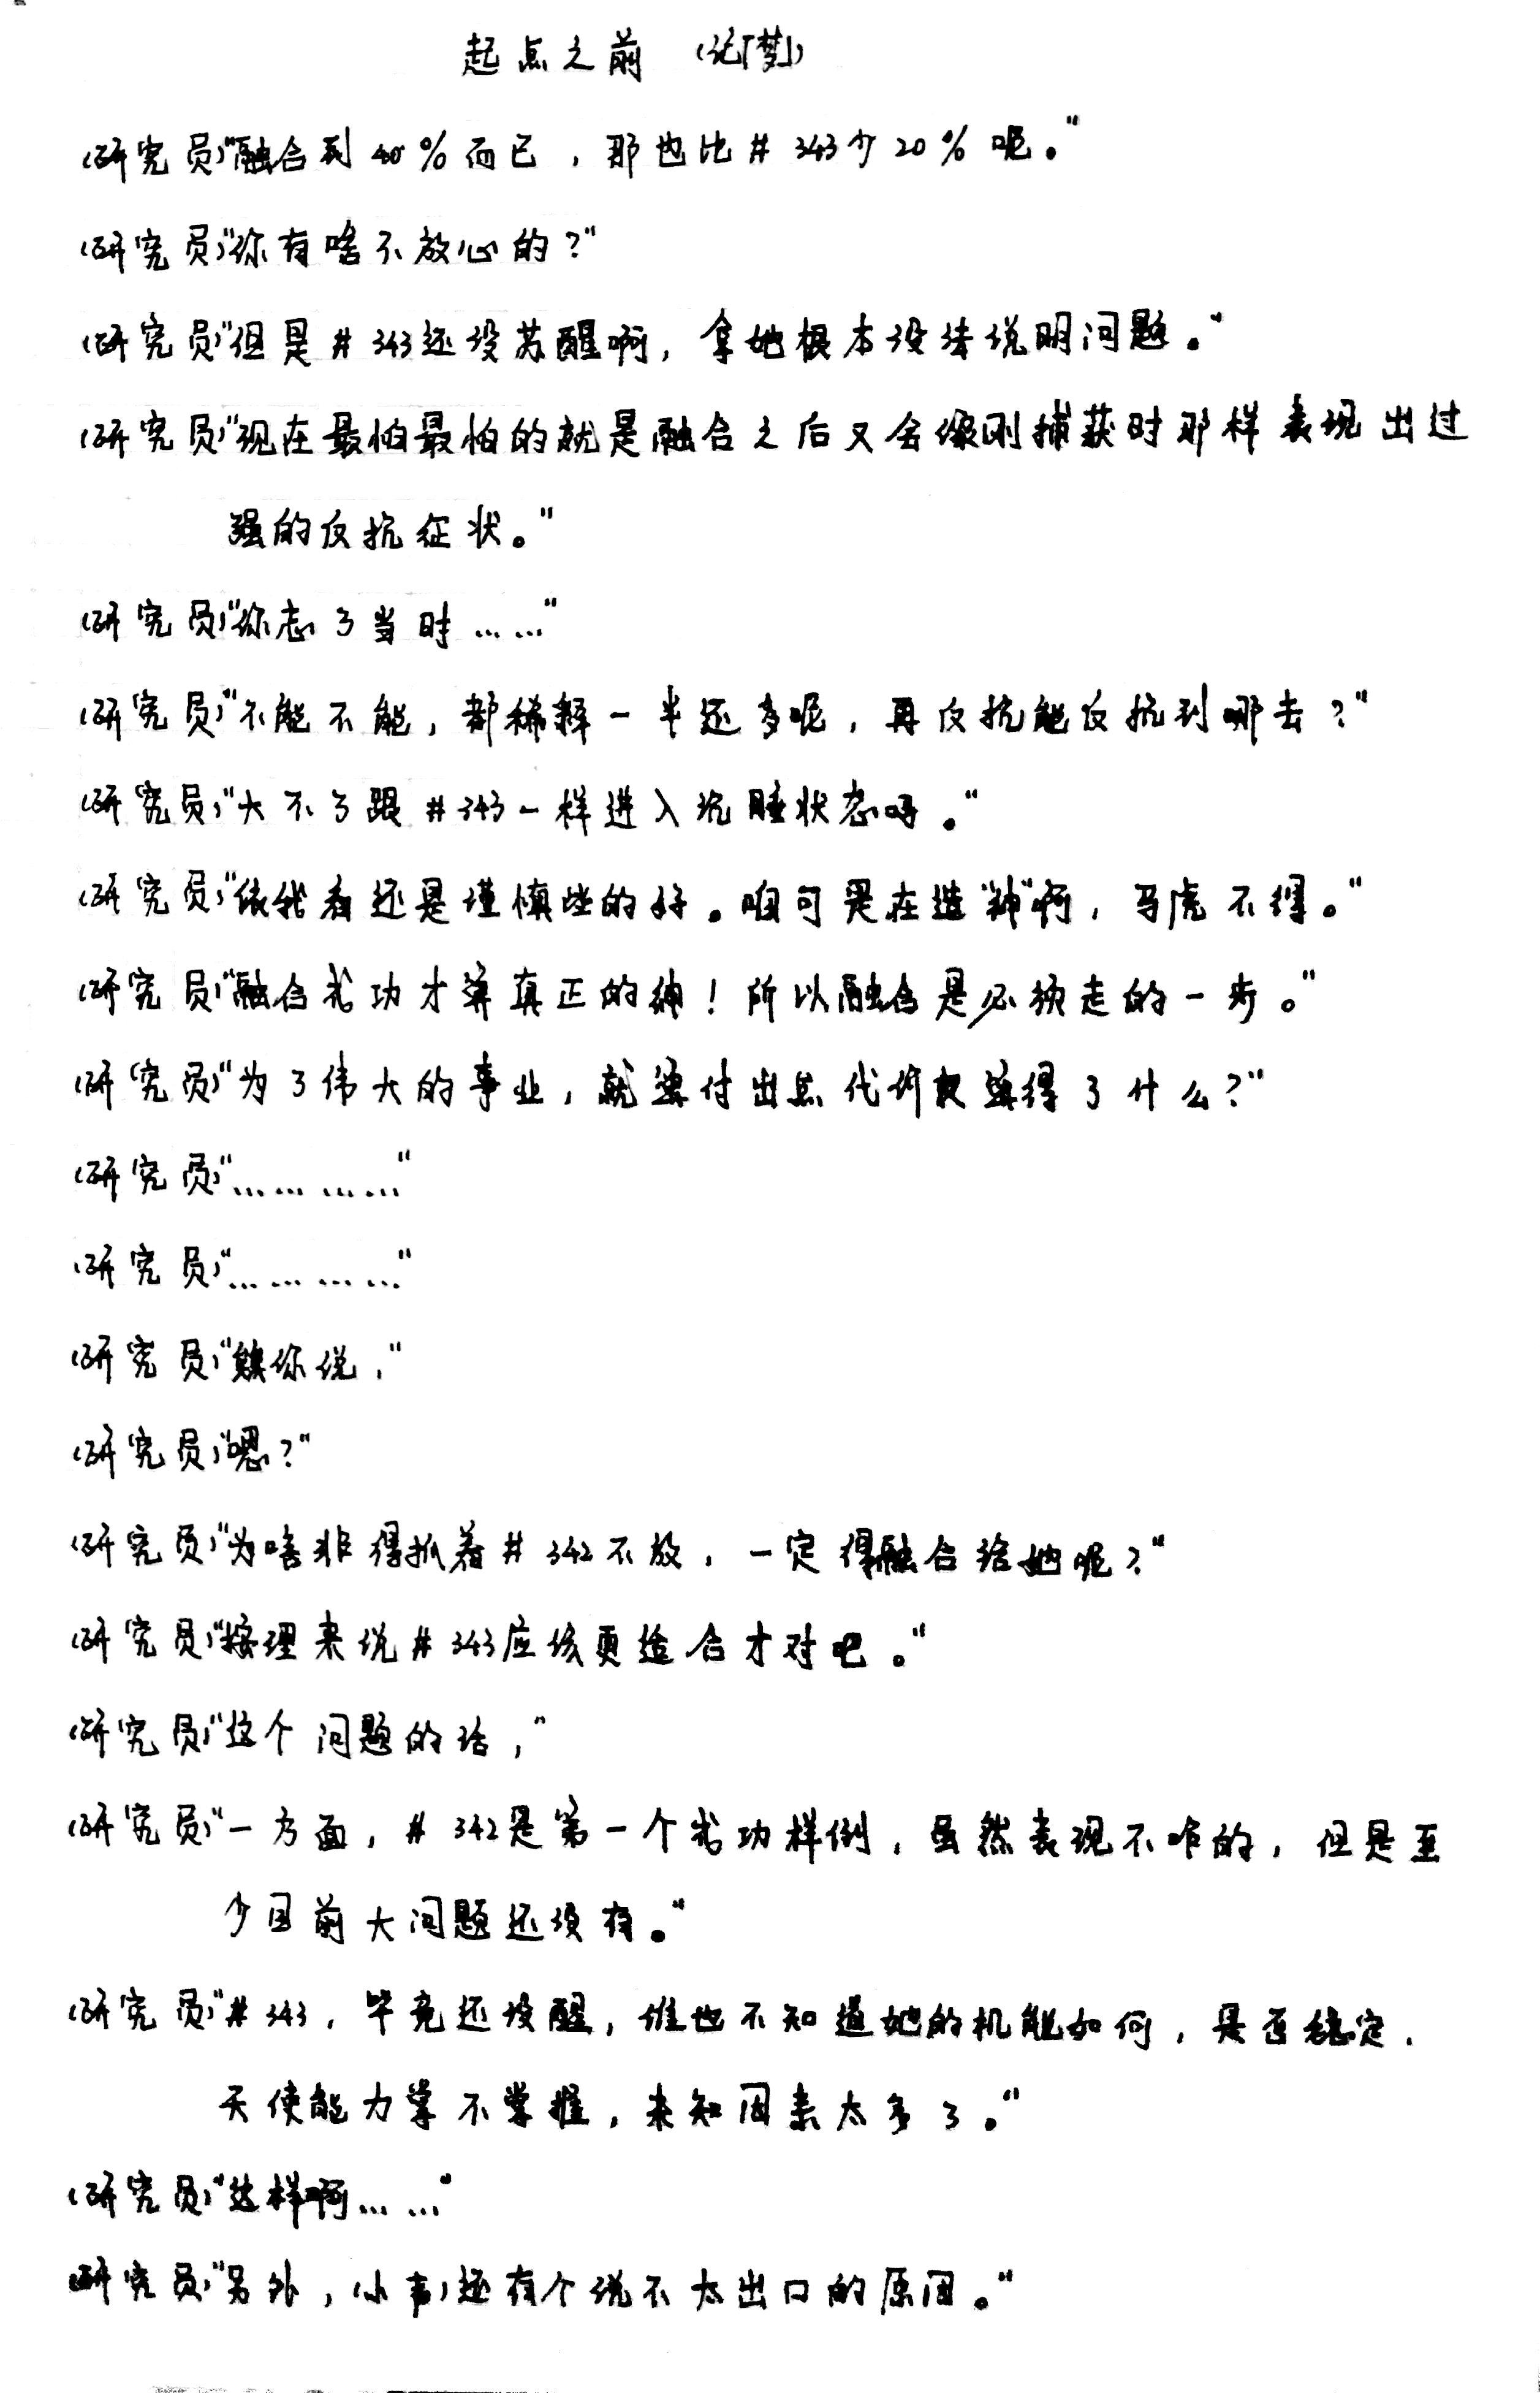 起点之前 (论「梦」)
(研究员)"融合到40%而已，那也比#343少20%呢。"
(研究员)"你有啥不放心的？"
(研究员)"但是#343还没苏醒啊，拿她根本没法说明问题。"
(研究员)"现在最怕最怕的就是融合之后又会像刚捕获时那样表现出过
强的反抗症状。"
(研究员)"你忘了当时……"
(研究员)"不能不能，都稀释一半还多呢，再反抗能反抗到哪去？"
(研究员)"大不了跟#343一样进入沉睡状态呀。"
(研究员)"依我看还是谨慎些的好。咱可是在造"神"啊，马虎不得。"
(研究员)"融合成功才算真正的神！所以融合是必须走的一步。"
(研究员)"为了伟大的事业，就算付出点代价又算得了什么？"
(研究员)"…………"
(研究员)"…………"
(研究员)"欸你说，"
(研究员)"嗯？"
(研究员)"为啥非得抓着#342不放，一定得融合给她呢？"
(研究员)"按理来说#343应该更适合才对吧。"
(研究员)"这个问题的话，"
(研究员)"一方面，#342是第一个成功样例，虽然表现不咋的，但是至
少目前大问题还没有。"
(研究员)"#343，毕竟还没醒，谁也不知道她的机能如何，是否稳定，
天使能力掌不掌握，未知因素太多了。"
(研究员)"这样啊……"
(研究员)"另外，(小声)还有个说不太出口的原因。"